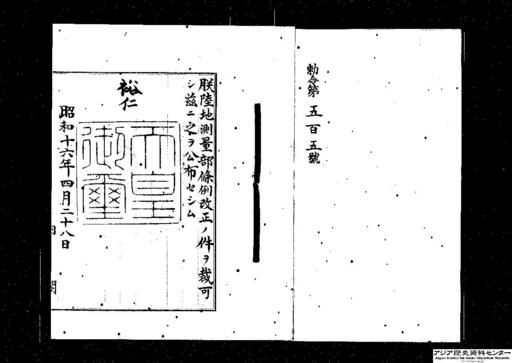 勅令第五百五號
朕陸地測量部條例改正ノ件ヲ裁可
シ茲ニ之ヲ公布セシム
裕仁
天皇
御璽
昭和十六年四月二十八日
内閣
アジア歴史資料センター
Japan Center for Asian Historical Records